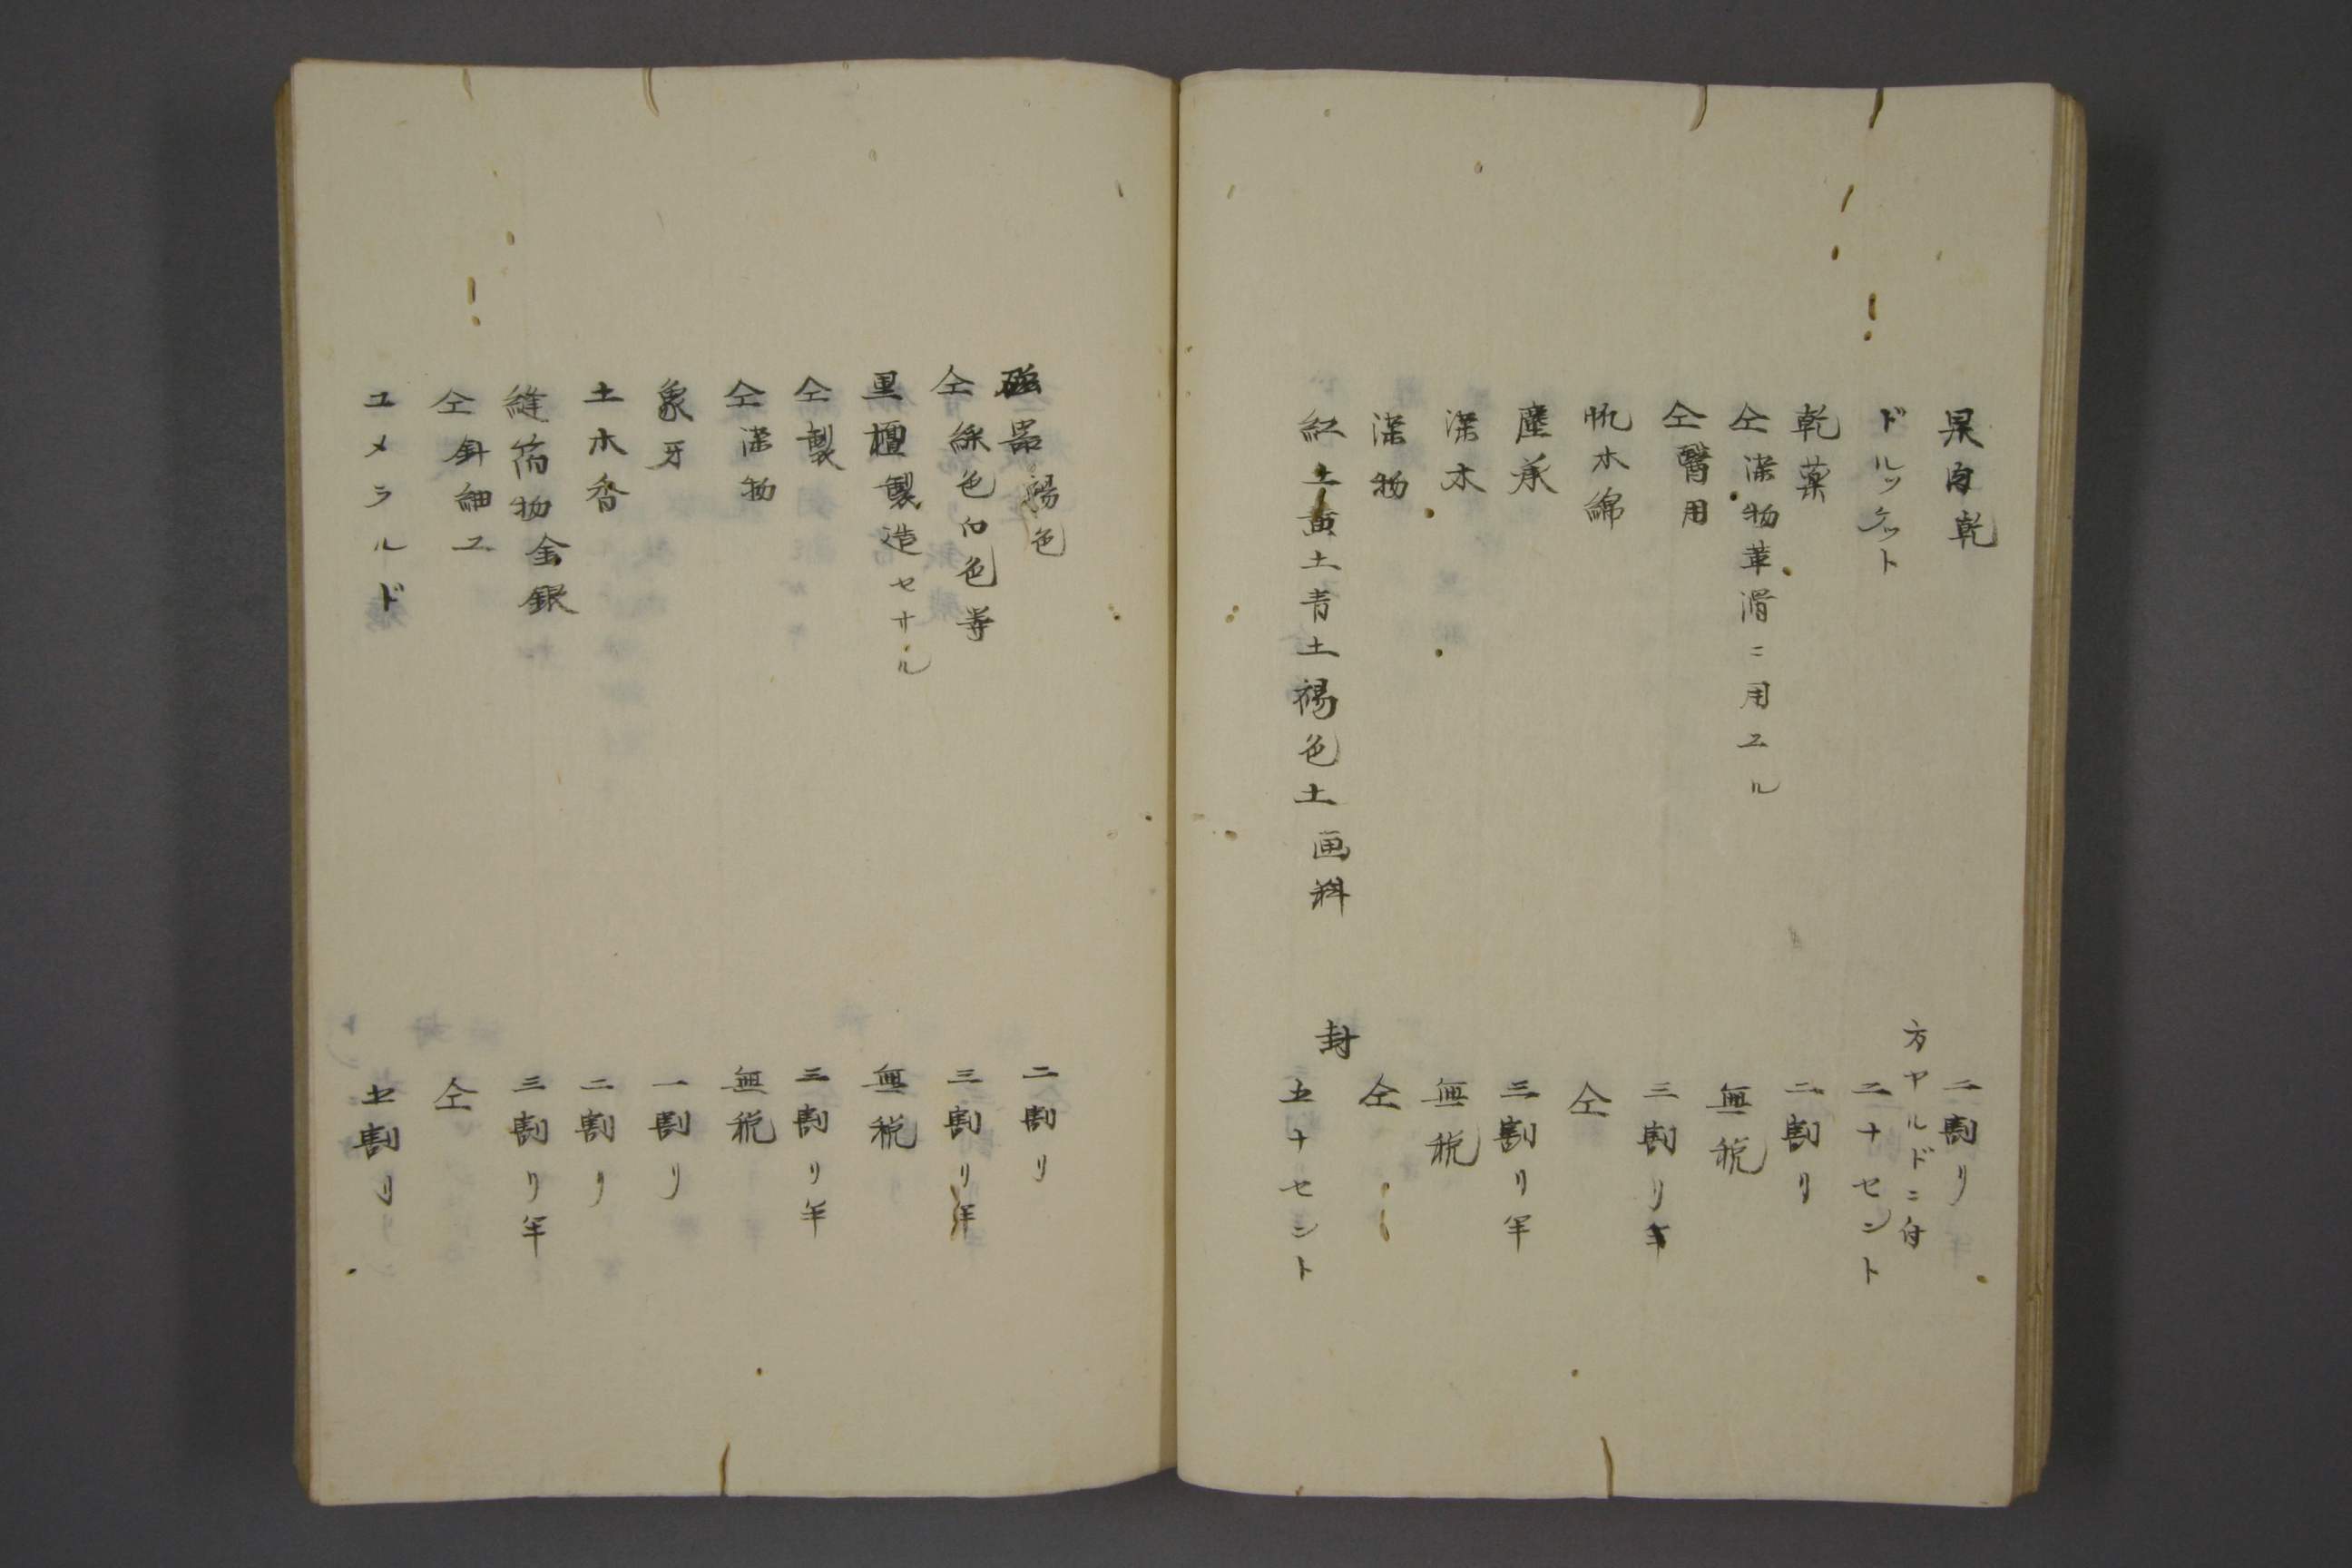 果肉乾　二割リ
ドルッケット　方ヤルドニ付二十セント
乾薬　二割リ
仝染物革滑ニ用ユル　無税
仝醫用　三割リ半
帆木綿　仝
塵承　三割リ半
染木　無税
染物　仝
紅土黄土青土褐色土画料　封五十セント
磁器褐色　二割リ
仝綵色白色等　三割リ半
黒檀製造セサル　無税
仝製　三割リ半
仝染物　無税
象牙　一割リ
土木香　二割リ
縫箔物金銀　三割リ半
仝針細工　仝
ユメラルド　七割リ